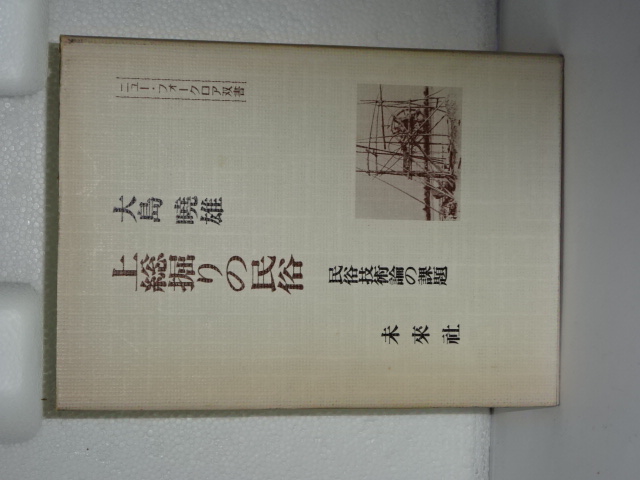 ニュー・フォークロア双書
大島暁雄
上総掘りの民俗
民俗技術論の課題
未來社